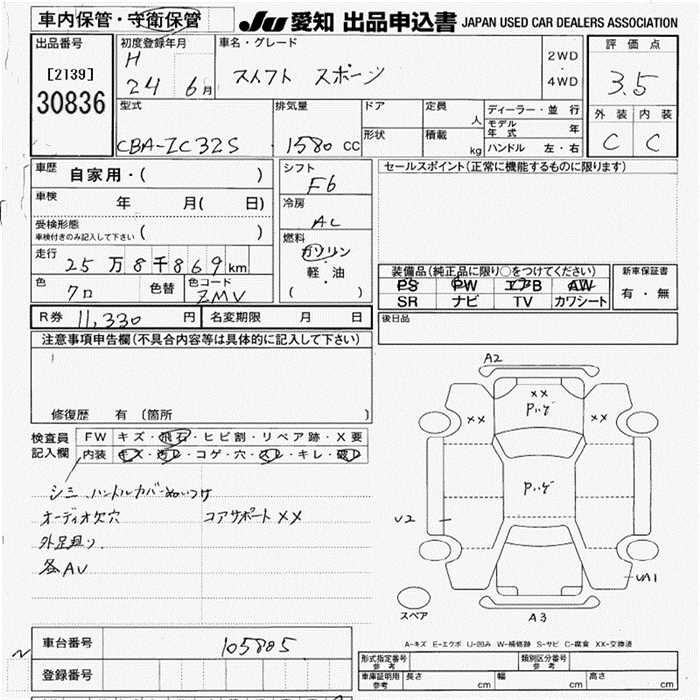 車内保管・守衛保管
JU 愛知 出品申込書 JAPAN USED CAR DEALERS ASSOCIATION
出品番号
[2139]
30836
初度登録年月
H
24 6月
車名・グレード
スイフト スポーツ
2WD
・
4WD
評価点
3.5
外装 内装
C C
型式
CBA-ZC32S
排気量
1580 CC
ドア
形状
定員
人
積載
kg
ディーラー・並行
モデル年式 年
ハンドル 左・右
車歴
自家用・( )
車検
年 月( 日)
受検形態
車検付きのみ記入して下さい ( )
走行
25万8千869km
色
クロ
色替
色コード
ZMV
シフト
F6
冷房
AC
燃料
ガソリン
・
軽・油
( )
セールスポイント(正常に機能するものに限ります)
装備品(純正品に限り○をつけてください)
PS PW エアB AW
SR ナビ TV カワシート
新車保証書
有・無
R券 11,330 円 名変期限 月 日
後日品
注意事項申告欄(不具合内容等は具体的に記入して下さい)
修復歴 有〔箇所 〕
検査員記入欄
FW キズ・飛石・ヒビ割・リペア跡・X要
内装 キズ・汚レ・コゲ・穴・スレ・キレ・破レ
シミ ハンドルカバーぬいつけ
オーディオ欠穴 コアサポートXX
外足廻り
各AU
A2
XX
Pハゲ
XX
XX
Pハゲ
U2
UA1
スペア
A3
A-キズ E-エクボ U-凹み W-補修跡 S-サビ C-腐食 XX-交換済
車台番号 105805
登録番号
形式指定番号 参考
類別区分番号 参考
車庫証明用 参考
長さ cm 幅 cm 高さ cm